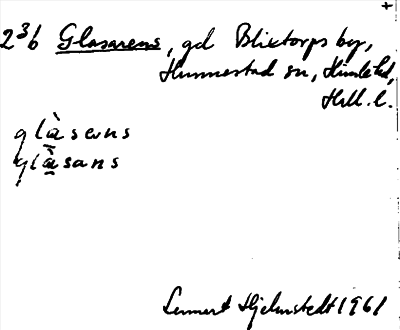 +
2³b Glasarens, gd Blixtorps by,
Hunnestad sn, Himle hd,
Hall. l.
glàsarns
glàsans
Lennart Hjelmstedt 1961